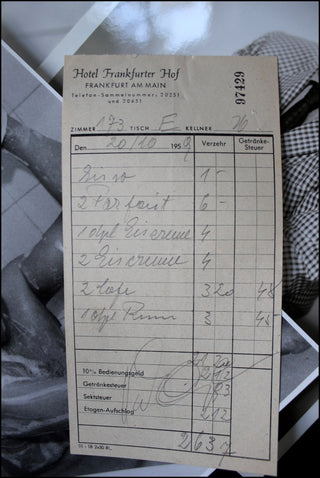 Hotel Frankfurter Hof
FRANKFURT AM MAIN
Telefon-Sammelnummer: 20251
und 20651
97429
ZIMMER 173 TISCH E KELLNER
Den 20/10 1959 Verzehr Getränke-Steuer
1 -
2 Parfait 6 -
1 dopl Eiscreme 4
2 Eiscreme 4
2 Cafe 3 20 48
1 dopl Rum 3 45
21 20
10% Bedienungsgeld 2 12
Getränkesteuer 93
Sektsteuer
Etagen-Aufschlag 2 12
26 37